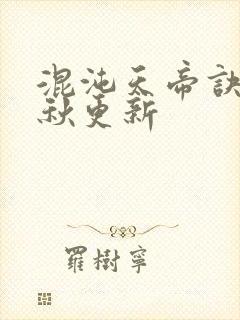 混沌天帝訣
秋更新
羅樹寧